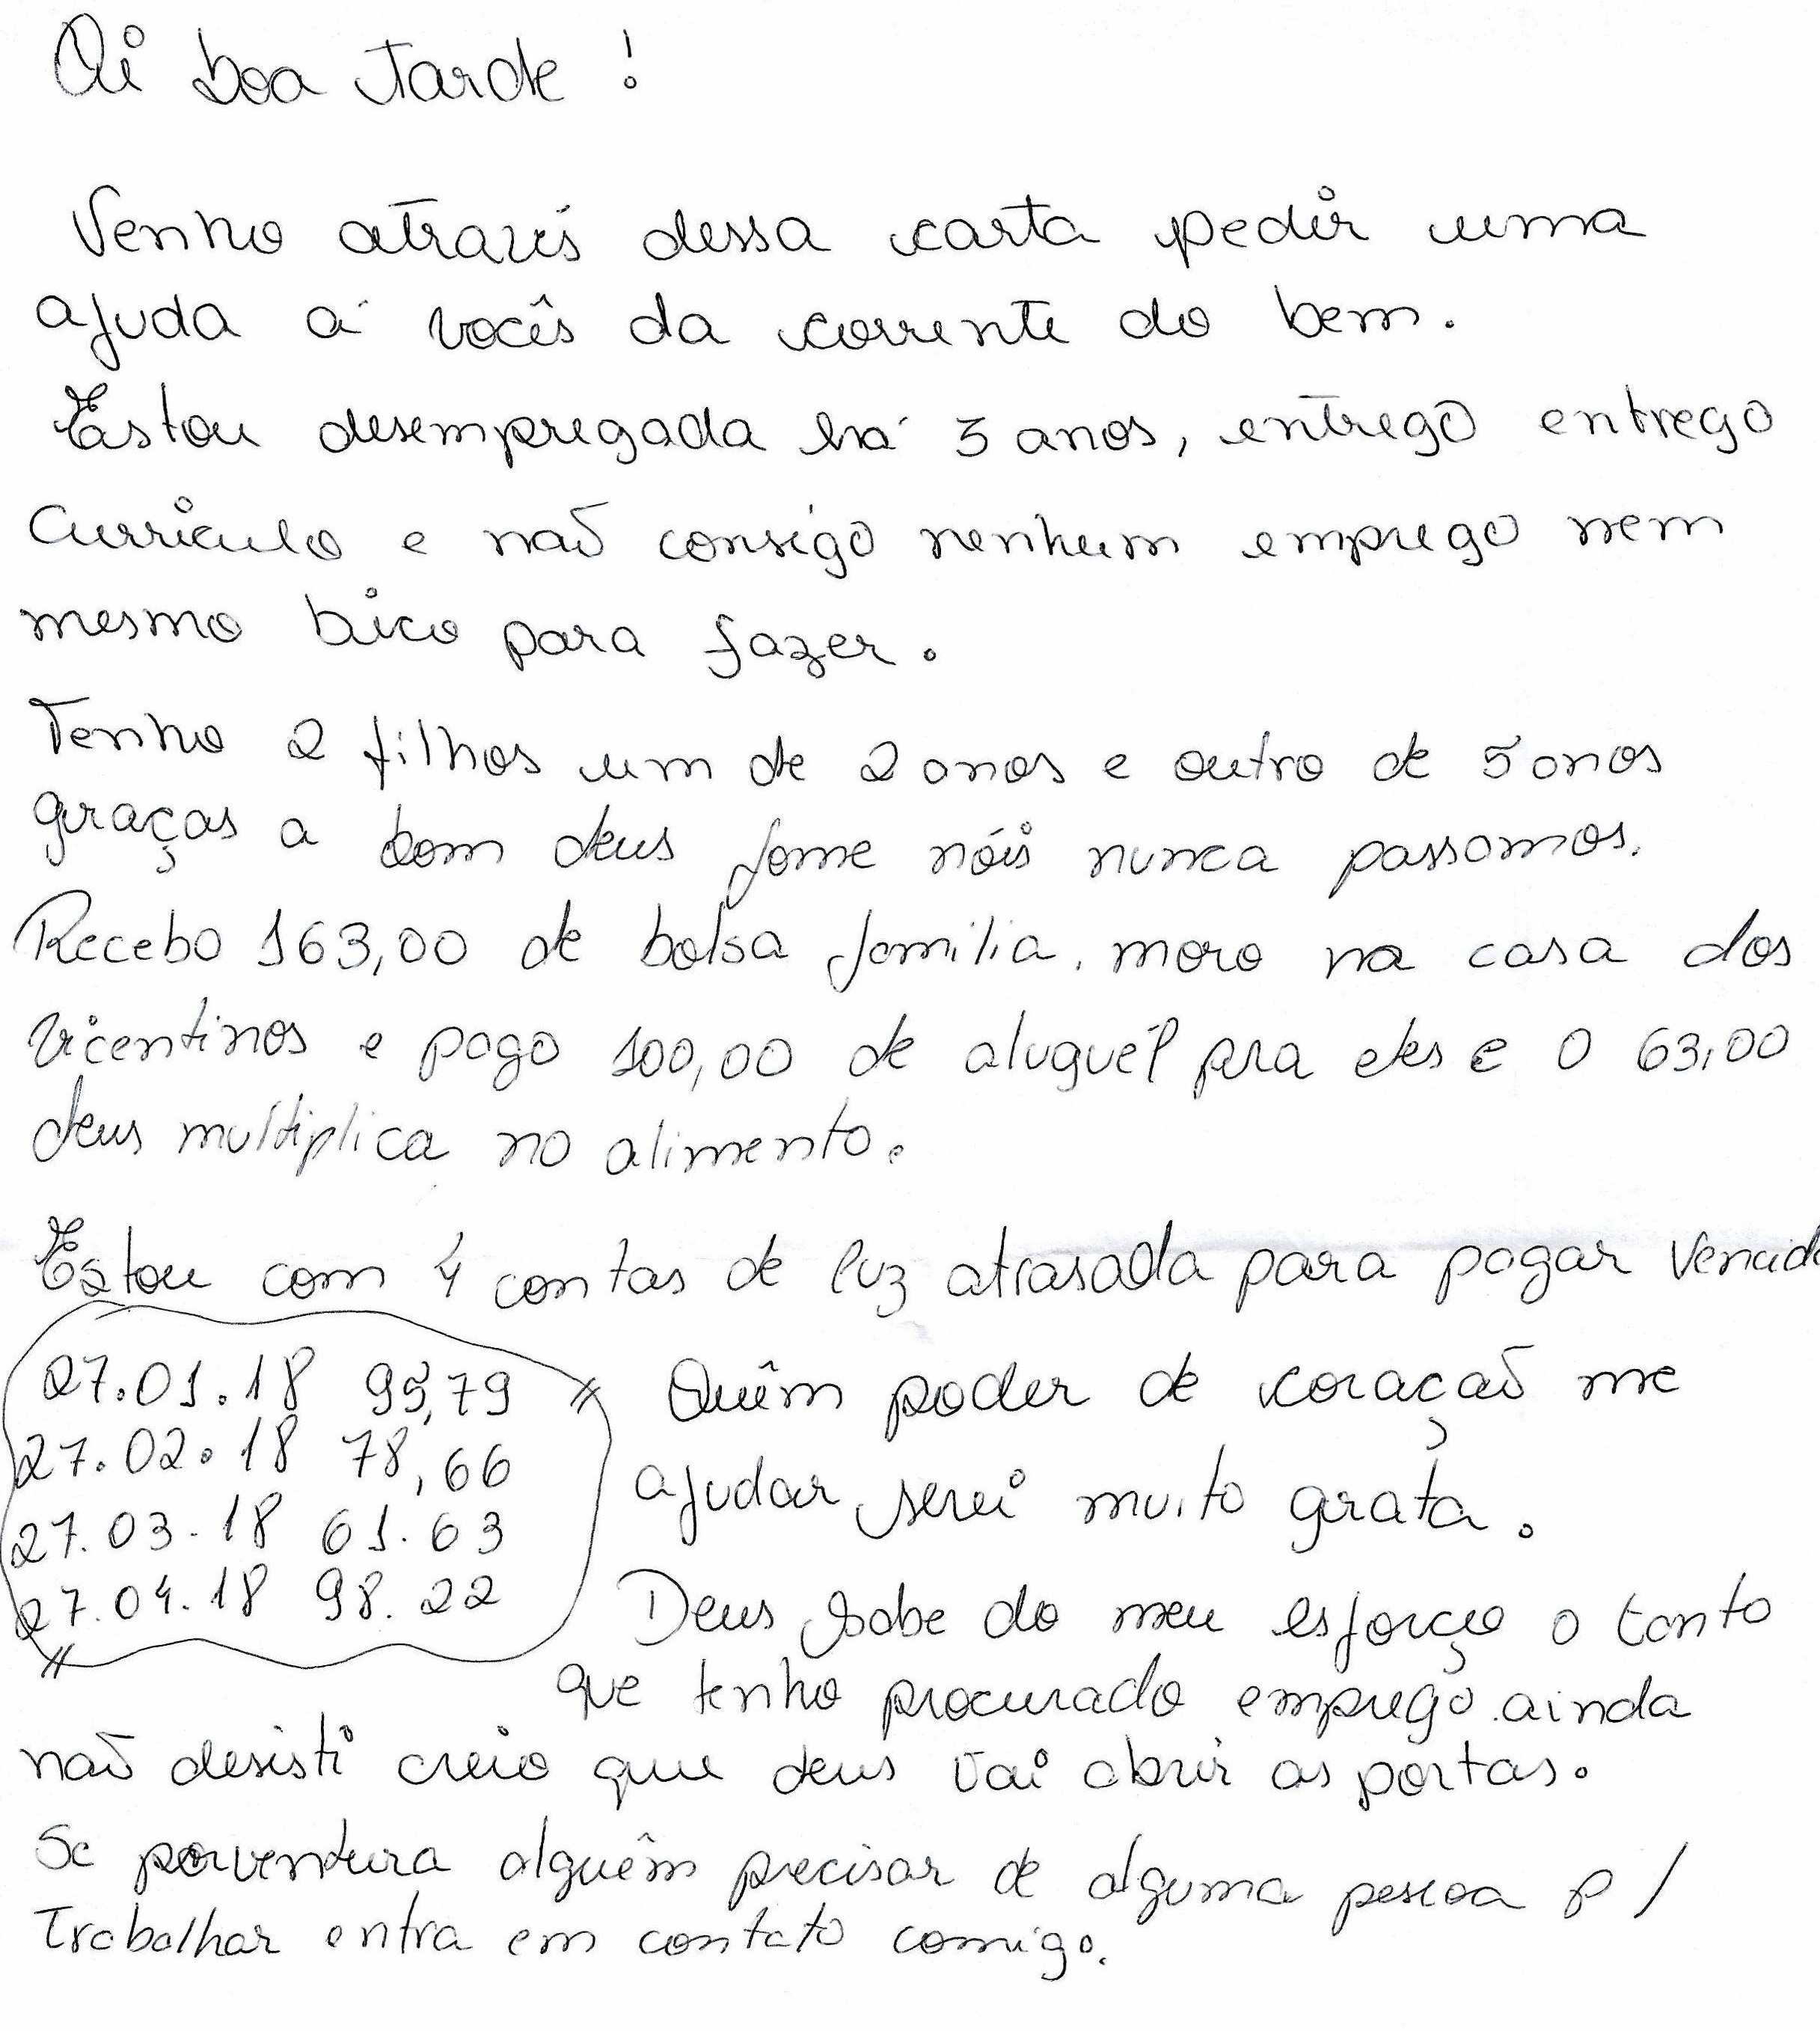 Oi boa Tarde !
Venho através dessa carta pedir uma
ajuda á vocês da corrente do bem.
Estou desempregada há 5 anos, entrego entrego
Curriculo e não consigo nenhum emprego nem
mesmo bico para fazer.
Tenho 2 filhos um de 2 anos e outro de 5 anos
graças a bom deus fome nóis nunca passamos.
Recebo 163,00 de bolsa familia. moro na casa dos
Vicentinos e pago 100,00 de aluguél pra eles e o 63,00
deus multiplica no alimento.
Estou com 4 contas de luz atrasada para pagar Vencid
27.01.18 95,79
27.02.18 78,66
27.03.18 61.63
27.04.18 98.22
Quêm poder de coração me
ajudar serei muito grata.
Deus sabe do meu esforço o tanto
que tenho procurado emprego. ainda
não desisti creio que deus vai abrir as portas.
Se porventura alguêm precisar de alguma pessoa p/
Trabalhar entra em contato comigo.